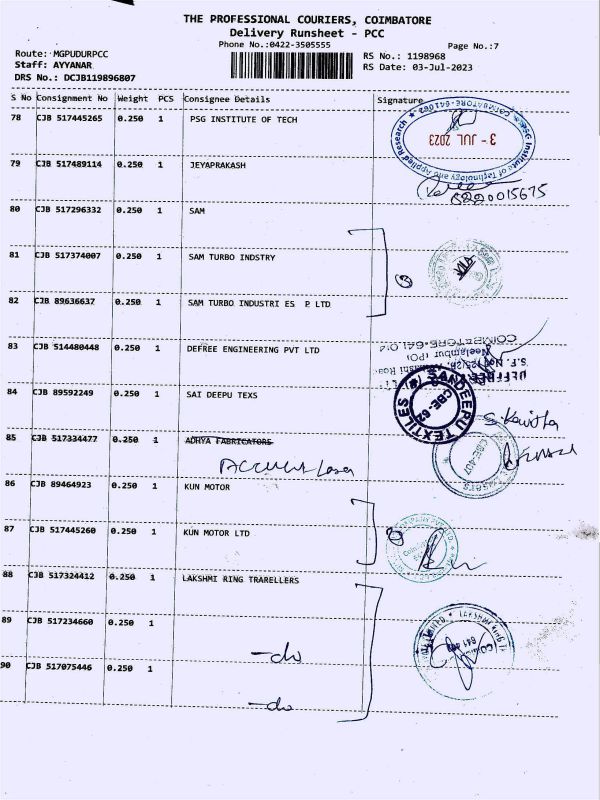 THE PROFESSIONAL COURIERS, COIMBATORE
Delivery Runsheet - PCC
Phone No.:0422-3505555
Page No.:7
Route: MGPUDURPCC
Staff: AYYANAR
DRS No.: DCJB119896807
RS No.: 1198968
RS Date: 03-Jul-2023
S No Consignment No Weight PCS Consignee Details Signature
78 CJB 517445265 0.250 1 PSG INSTITUTE OF TECH
PSG Institute of Technology and Applied Research ★ COIMBATORE-641062 ★
3 - JUL 2023
79 CJB 517489114 0.250 1 JEYAPRAKASH
8220015675
80 CJB 517296332 0.250 1 SAM
81 CJB 517374007 0.250 1 SAM TURBO INDSTRY
82 CJB 89636637 0.250 1 SAM TURBO INDUSTRI ES P LTD
83 CJB 514480448 0.250 1 DEFREE ENGINEERING PVT LTD
Neelambur (PO)
COIMBATORE-641 014
84 CJB 89592249 0.250 1 SAI DEEPU TEXS
DEEPU TEXTILES
CBE-62
S. Kavitha
85 CJB 517334477 0.250 1 ADHYA FABRICATORS
Accurate Laser
CBE-407
86 CJB 89464923 0.250 1 KUN MOTOR
87 CJB 517445260 0.250 1 KUN MOTOR LTD
88 CJB 517324412 0.250 1 LAKSHMI RING TRARELLERS
89 CJB 517234660 0.250 1
-do
90 CJB 517075446 0.250 1
-do